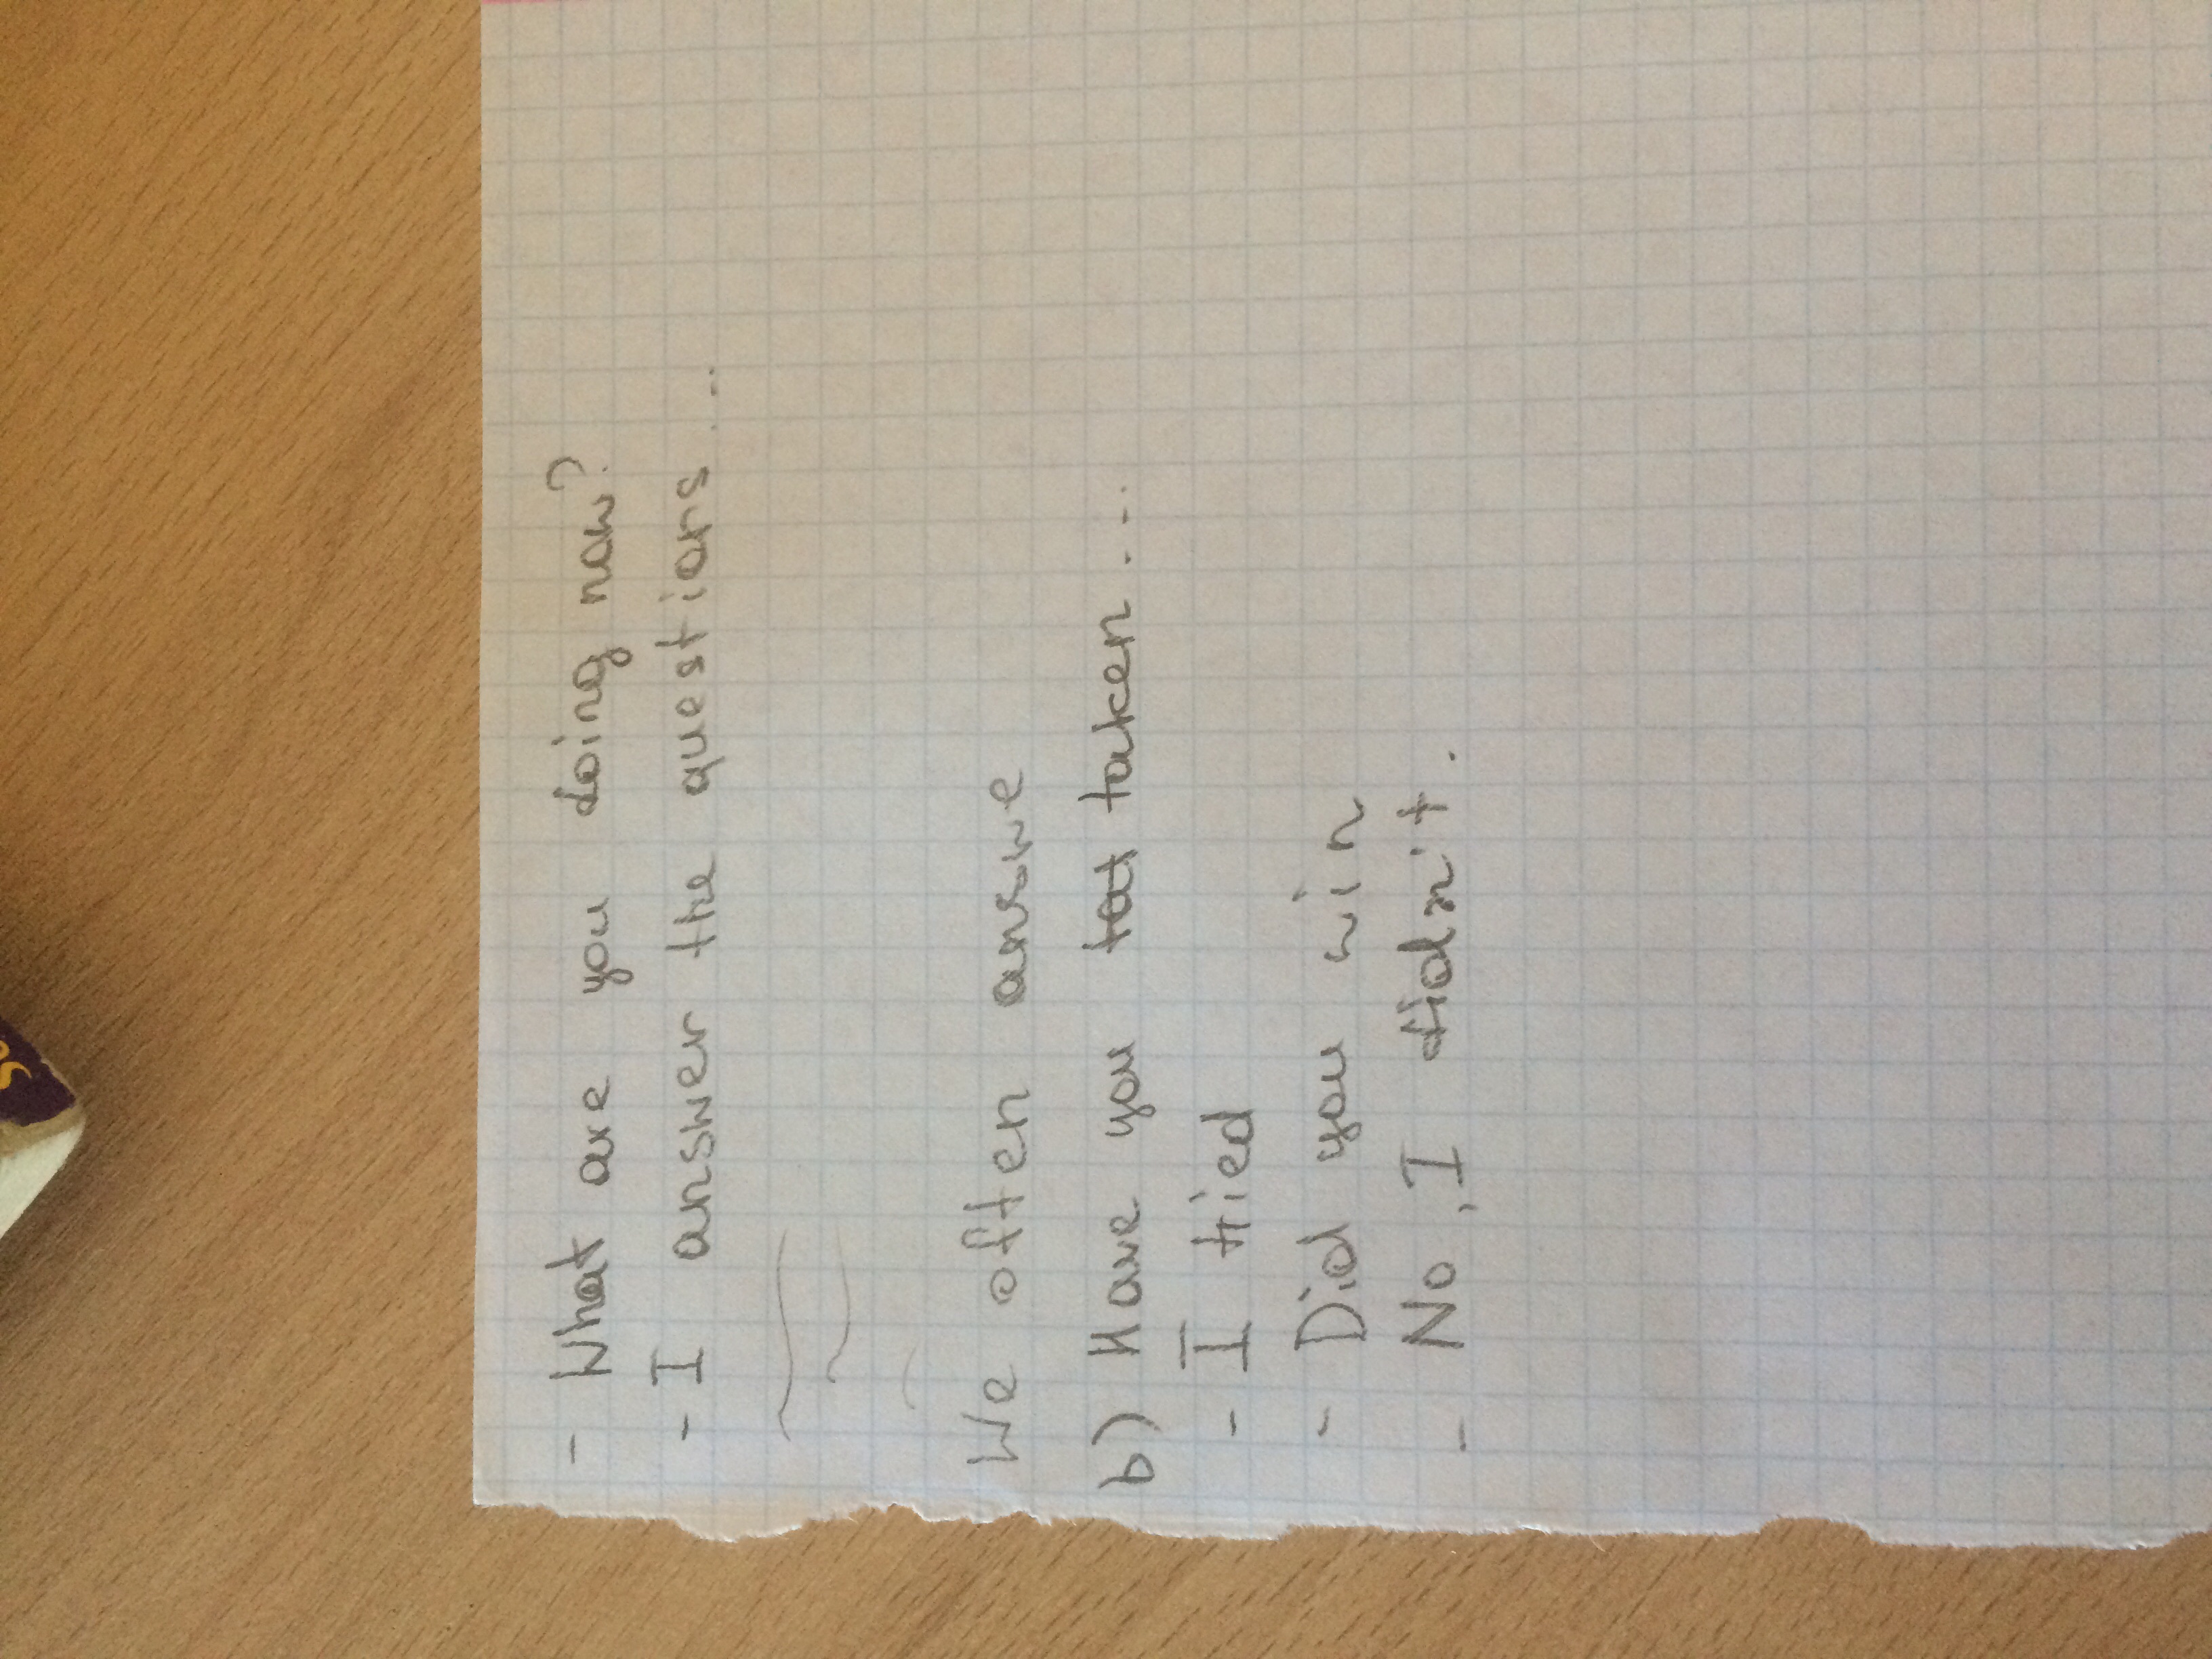 - What are you doing now?
- I answer the questions...
We often answe
b) Have you tot taken...
- I tried
- Did you win
- No, I didn't.